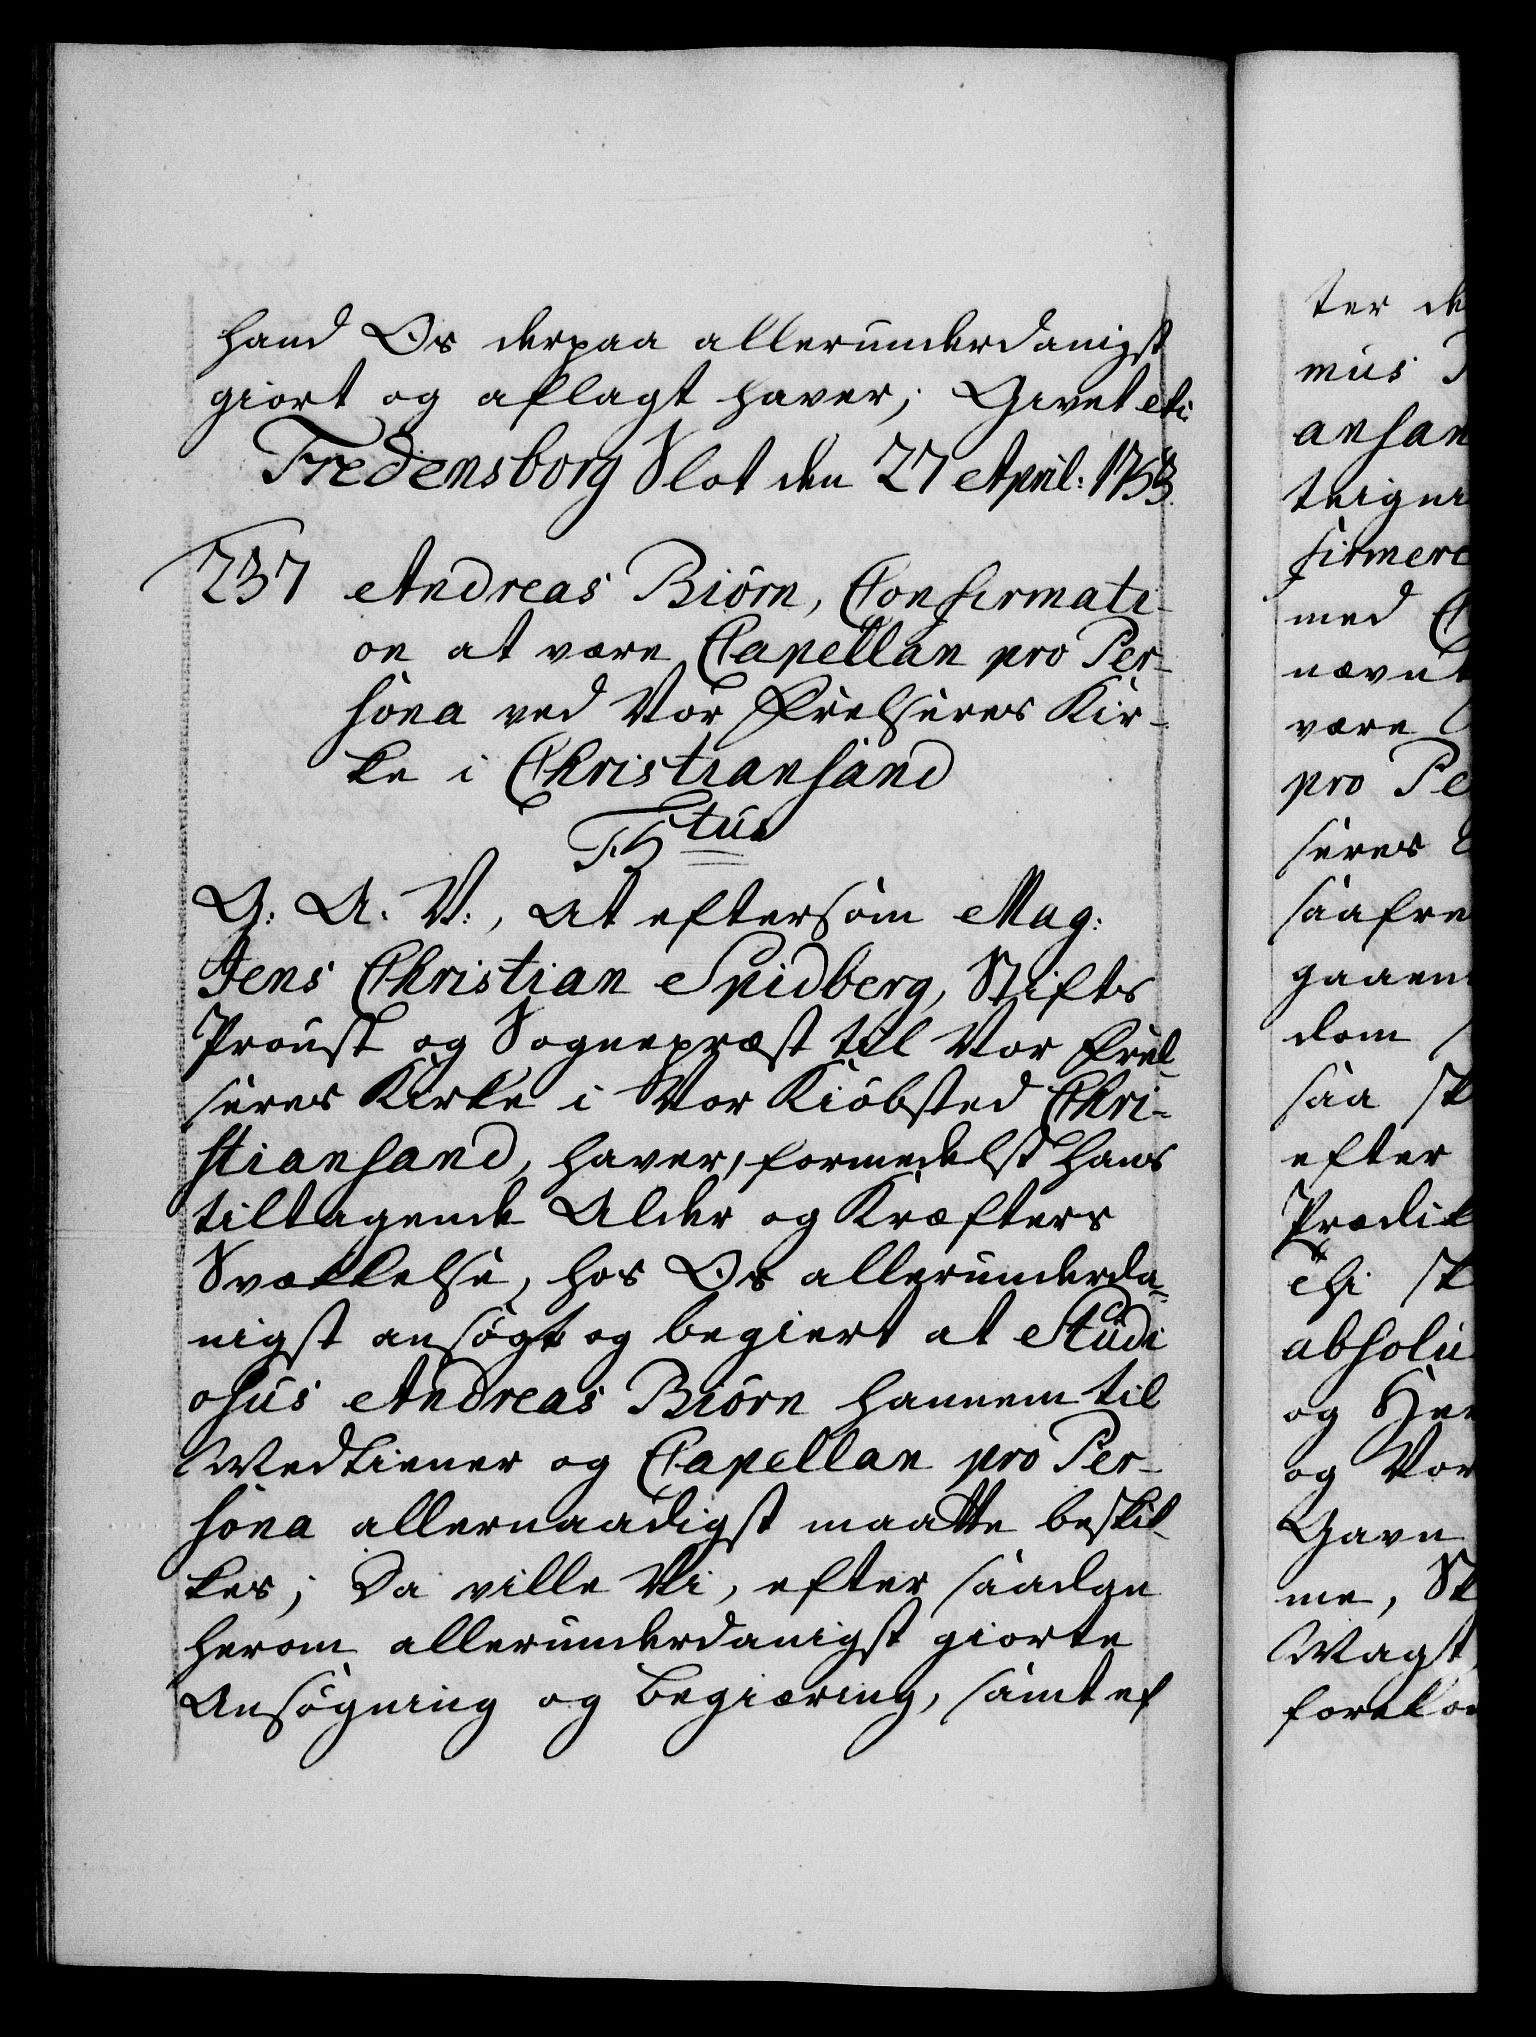 hand Os derpaa allerunderdanigst
giort og aflagt haver; Givet etc
Fredensborg Slot den 27 April: 1753.
237 Andreas Biörn, Confirmati-
on at være Capellan pro Per-
sona ved Vor Frelseres Kir-
ke i Christiansand
F 5tus
G: A. V:, At eftersom Mag:
Jens Christian Spidberg, Stifts
Proust og Sognepræst til Vor Frel-
seres Kirke i Vor Kiöbsted Chri-
stiansand, haver, formedelst hans
tiltagende Alder og Kræfters
Svækkelse, hos Os allerunderda-
nigst ansögt og begiert at Studi
osus Andreas Biörn hannem til
Medtiener og Capellan pro Per-
sona allernaadigst maatte beskik-
kes; Da ville Vi, efter saadan
herom allerunderdanigst giorte
Ansögning og begiæring, samt ef
ter de
mus
ansan
teigne
firmere
med C
nævnt
være
pro Pe
seres
saafre
gaaen
dom
saa sk
efter
Prædik
ehi sk
absolu
og
og Vor
Gavn
me, Sk
Magt,
forekom